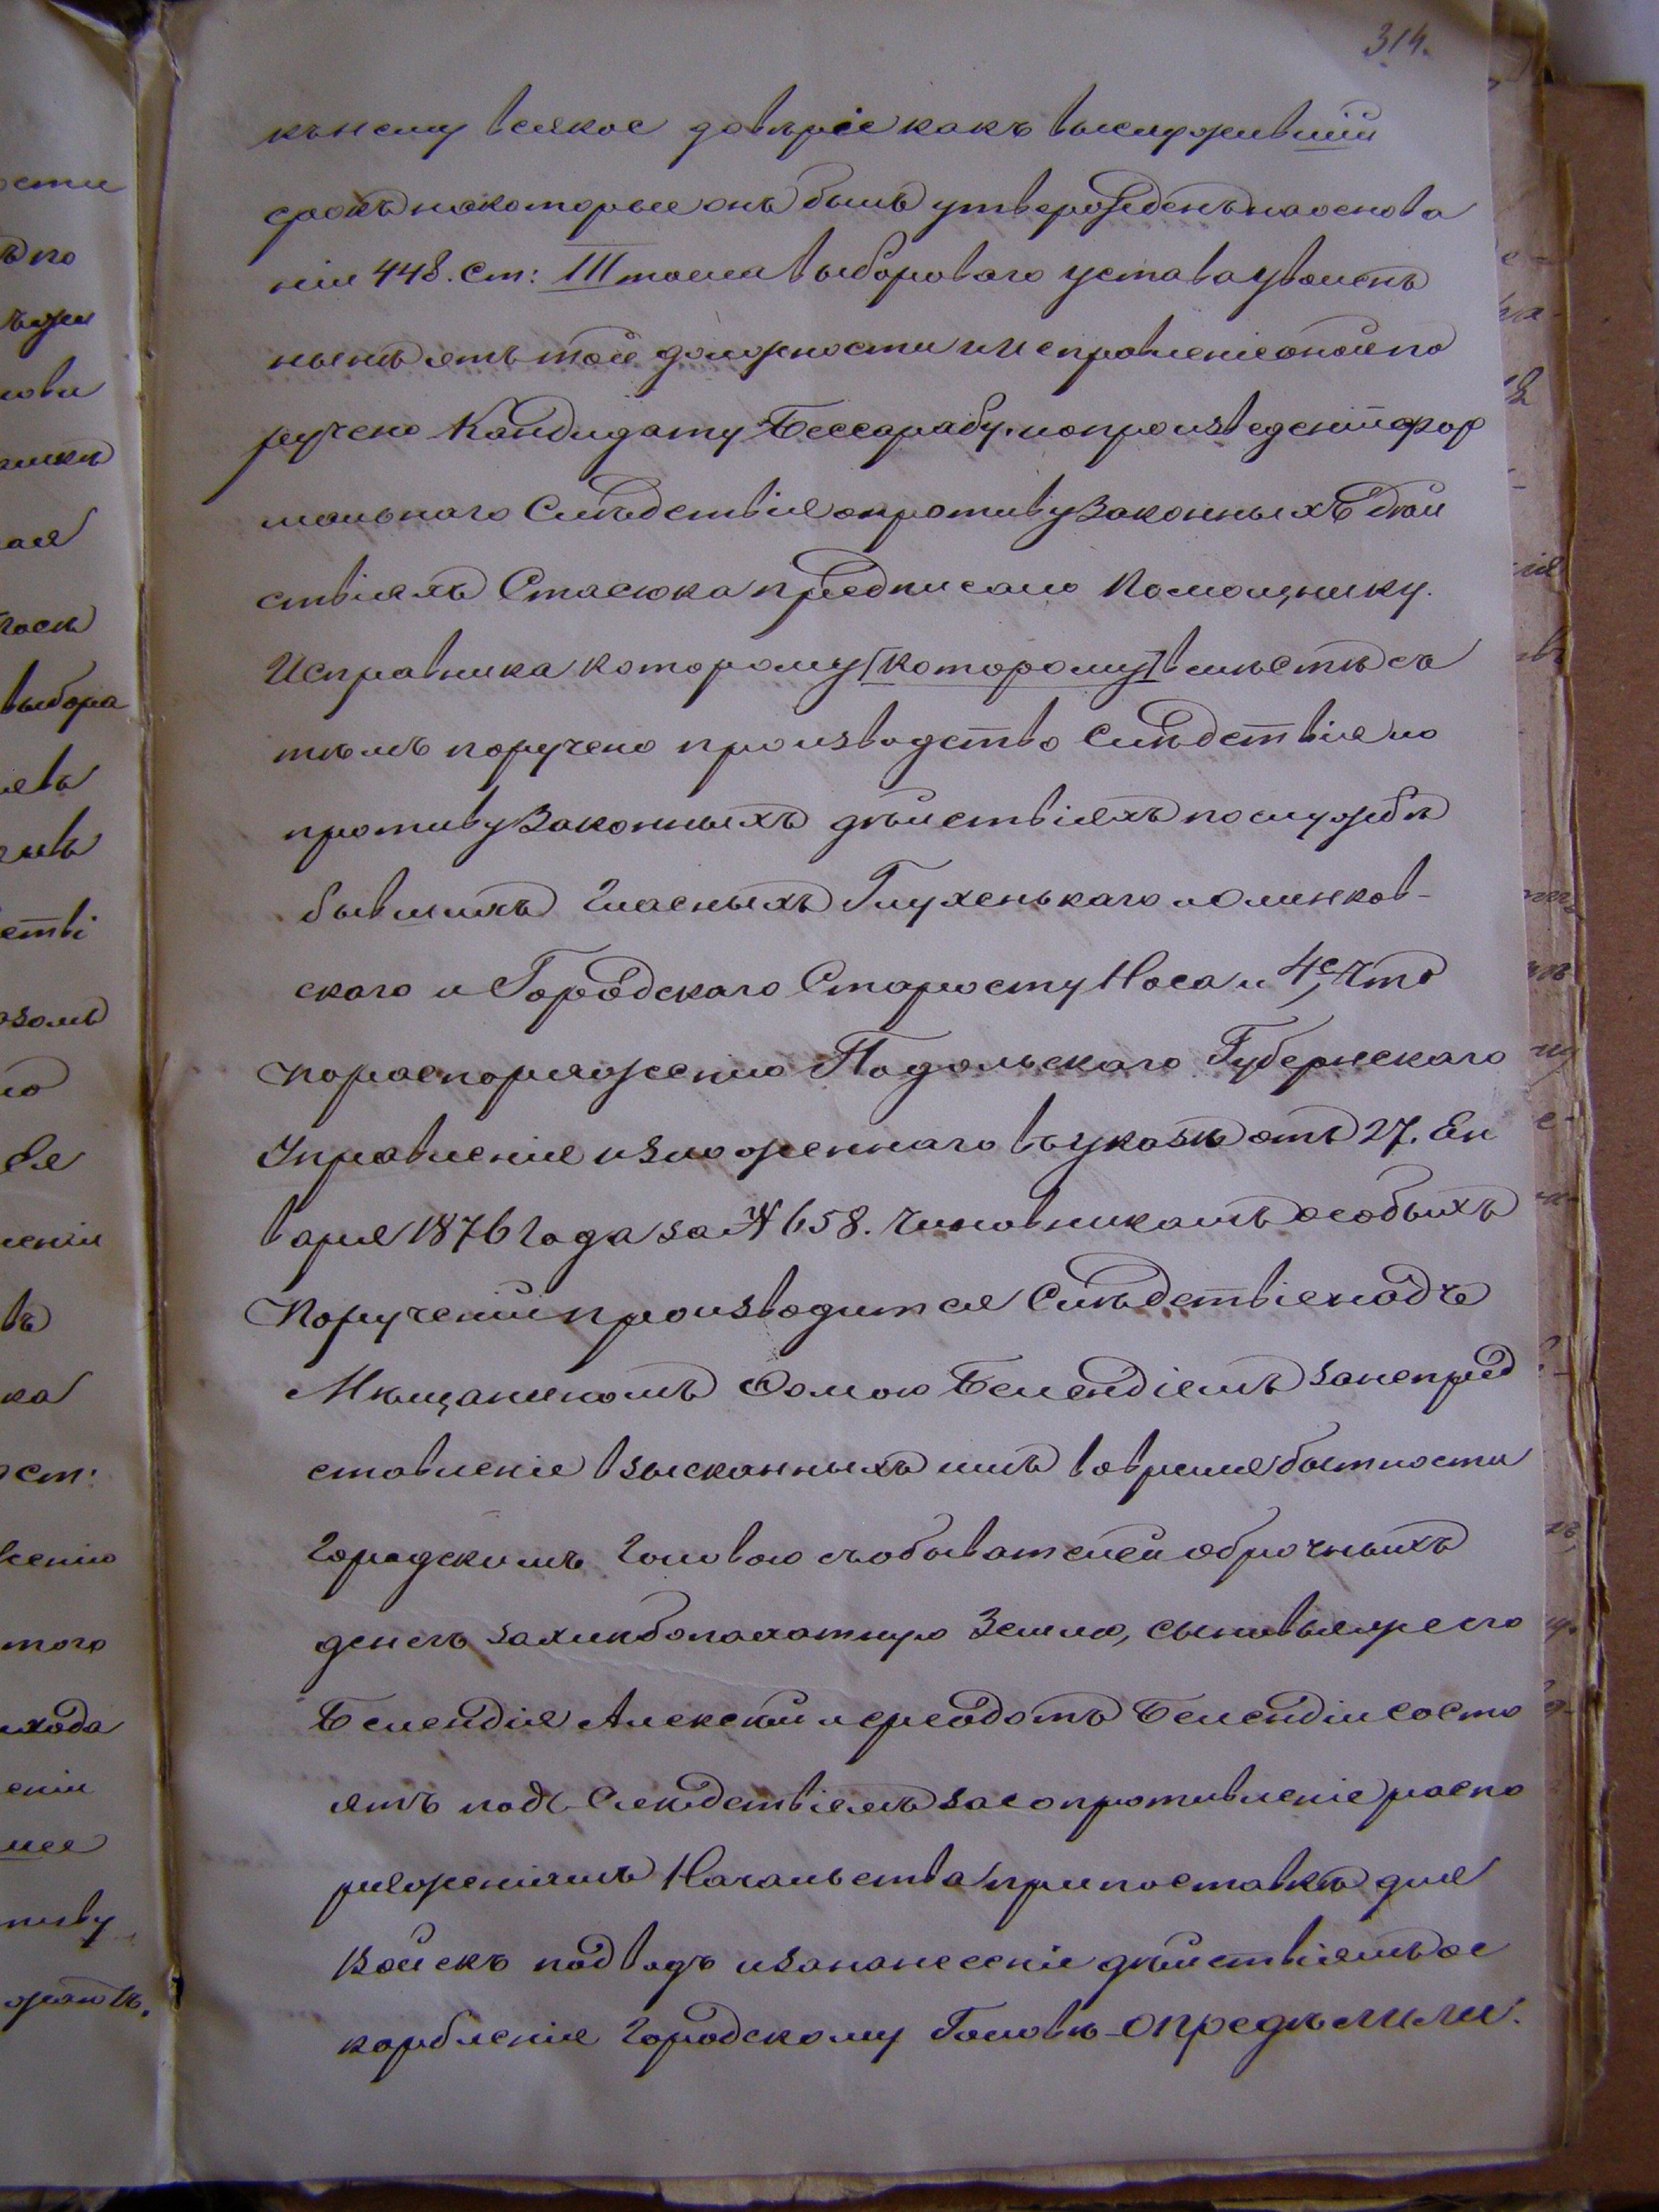 314.
къ нему всякое довѣріе какъ выслужившій
срокъ на которые онъ былъ утвержденъ на основа
ніи 448. ст: III тома выбороваго устава уволенъ
нынѣ отъ той должности и исправленіе оной по
ручено Кандидату Бессарабу, и о произведеніи фор
мальнаго Слѣдствія о противузаконныхъ дѣй
ствіяхъ Стасюка предписано Помощнику
Исправника которому [которому] вмѣстѣ съ
тѣмъ поручено производство Слѣдствія и о
противузаконныхъ дѣйствіяхъ по службѣ
бывшихъ Гласныхъ Глухенькаго и Олинков-
скаго и Городскаго Старосту Носа и 4е, что
по распоряженію Подольскаго Губернскаго
Управленія изложеннаго въ указѣ отъ 27. Ен
варя 1876 года за № 658. Чиновникамъ особыхъ
Порученій производится Слѣдствіе надъ
Мѣщаниномъ Фомою Белендіемъ за непред
ставленіе взысканныхъ имъ во время бытности
Городскимъ Головою съ обывателей оброчныхъ
денегъ за хлѣбопахатную Землю, сыновья же его
Белендія Алексѣй и Ѳеодотъ Белендіи состо
ятъ подъ Слѣдствіемъ за сопротивленіе распо
ряженіямъ Начальства при поставкѣ для
Войскъ подводъ и за нанесеніе дѣйствіемъ ос
корбленія Городскому Головѣ – опредѣлили: